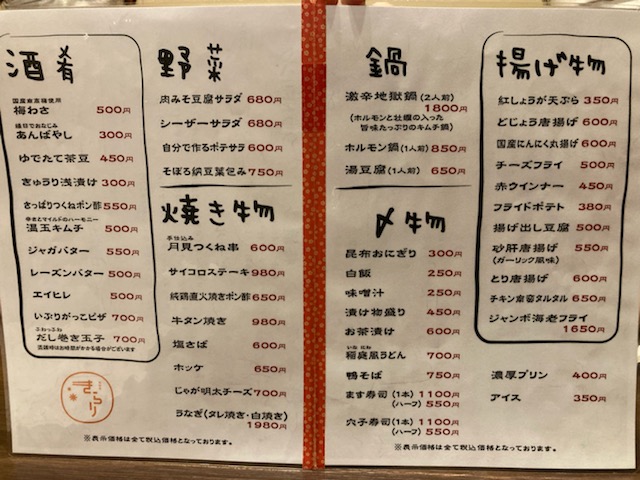 酒肴
国産南高梅使用
梅わさ 500円
縁日でおなじみ
あんばやし 300円
ゆでたて茶豆 450円
きゅうり浅漬け 300円
さっぱりつくねポン酢 550円
辛さとマイルドのハーモニー
温玉キムチ 500円
ジャガバター 550円
レーズンバター 550円
エイヒレ 500円
いぶりがっとピザ 700円
ふわっふわ
だし巻き玉子 700円
混雑時はお時間がかかる場合がございます
きらり
野菜
肉みそ豆腐サラダ 680円
シーザーサラダ 680円
自分で作るポテサラ 600円
そぼろ納豆葉包み 750円
焼き物
手仕込み
月見つくね串 600円
サイコロステーキ 980円
純鶏直火焼きポン酢 650円
牛タン焼き 980円
塩さば 600円
ホッケ 650円
じゃが明太チーズ 700円
うなぎ(タレ焼き・白焼き)
1980円
※表示価格は全て税込価格となっております。
鍋
激辛地獄鍋(2人前)
1800円
(ホルモンと牡蠣の入った
旨味たっぷりのキムチ鍋)
ホルモン鍋(1人前) 850円
湯豆腐(1人前) 650円
〆物
昆布おにぎり 300円
白飯 250円
味噌汁 250円
漬け物盛り 450円
お茶漬け 600円
いな にわ
稲庭風うどん 700円
鴨そば 750円
ます寿司(1本) 1100円
(ハーフ) 550円
穴子寿司(1本) 1100円
(ハーフ) 550円
揚げ物
紅しょうが天ぷら 350円
どじょう唐揚げ 600円
国産にんにく丸揚げ 600円
チーズフライ 500円
赤ウインナー 450円
フライドポテト 380円
揚げ出し豆腐 500円
砂肝唐揚げ 550円
(ガーリック風味)
とり唐揚げ 600円
チキン南蛮タルタル 650円
ジャンボ海老フライ
1650円
濃厚プリン 400円
アイス 350円
※表示価格は全て税込価格となっております。